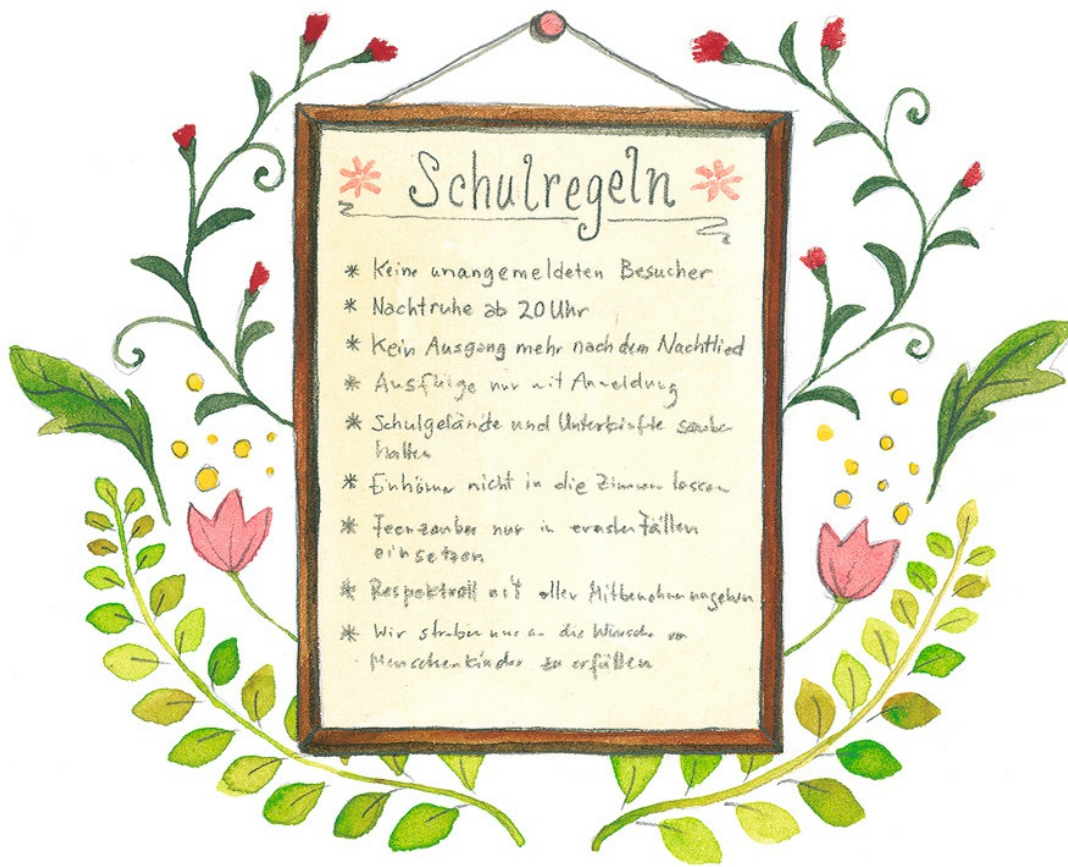 Schulregeln
* Keine unangemeldeten Besucher
* Nachtruhe ab 20 Uhr
* Kein Ausgang mehr nach dem Nachtlied
* Ausflüge nur mit Anmeldung
* Schulgelände und Unterkünfte sauber
halten
* Einhörner nicht in die Zimmer lassen
* Feenzauber nur in ernsten Fällen
einsetzen
* Respektvoll mit allen
* Wir streben an die Wünsche von
Menschenkinder zu erfüllen